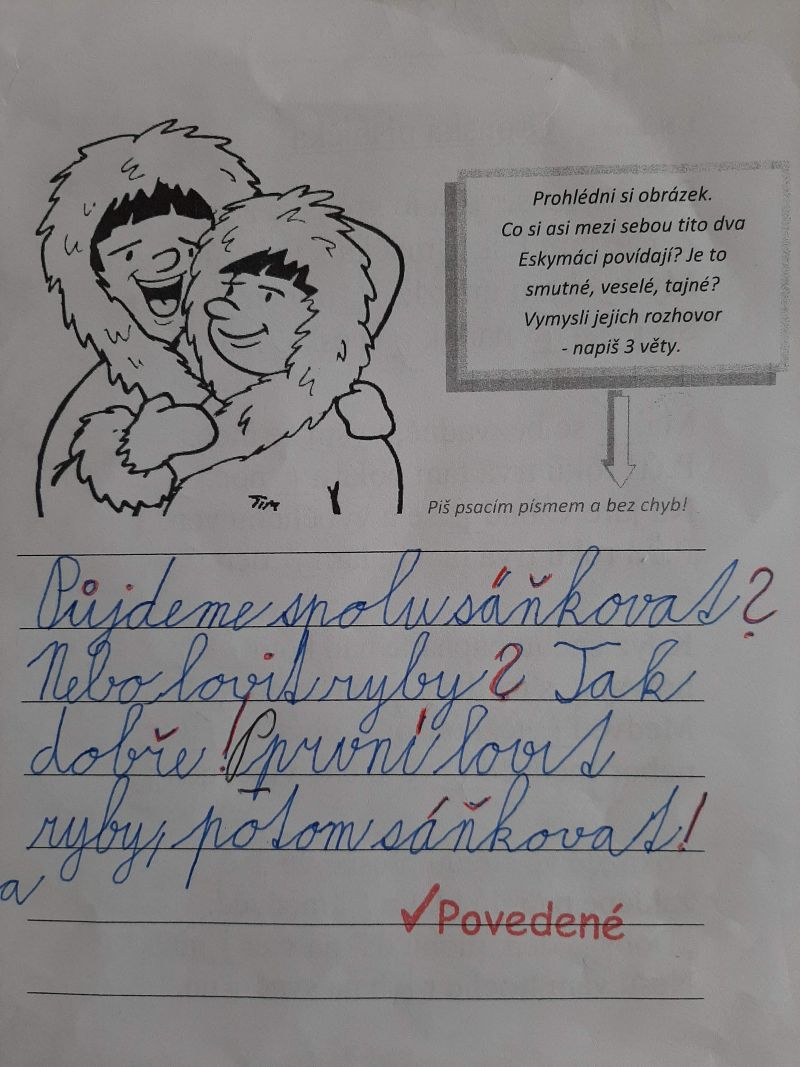 Prohlédni si obrázek.
Co si asi mezi sebou tito dva
Eskymáci povídají? Je to
smutné, veselé, tajné?
Vymysli jejich rozhovor
- napiš 3 věty.
Tim
Piš psacím písmem a bez chyb!
Půjdeme spolu sáňkovat?
Nebo lovit ryby? Tak
dobře! Pprvní lovit
ryby, potom sáňkovat!
a
✓Povedené